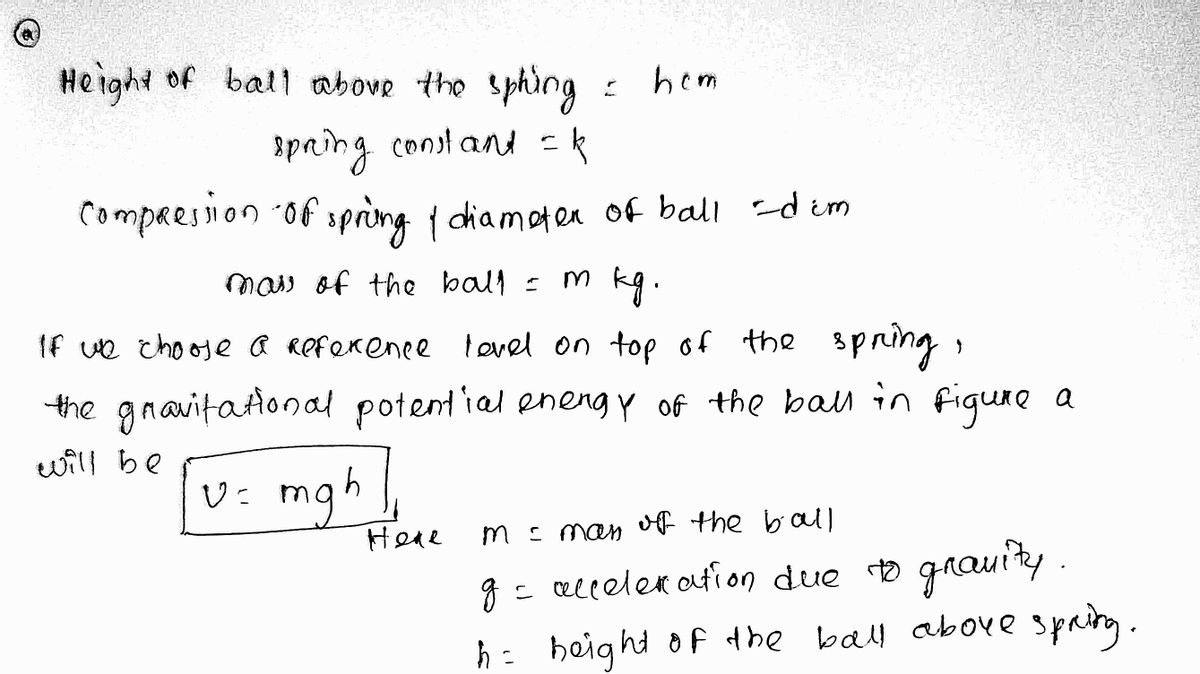 (a)
Height of ball above the sphing = h cm
spring constant = k
Compression of spring / diameter of ball = d cm
mass of the ball = m kg.
If we choose a reference level on top of the spring,
the gravitational potential energy of the ball in figure a
will be
U = mgh
Here m = mass of the ball
g = acceleration due to gravity.
h = height of the ball above spring.